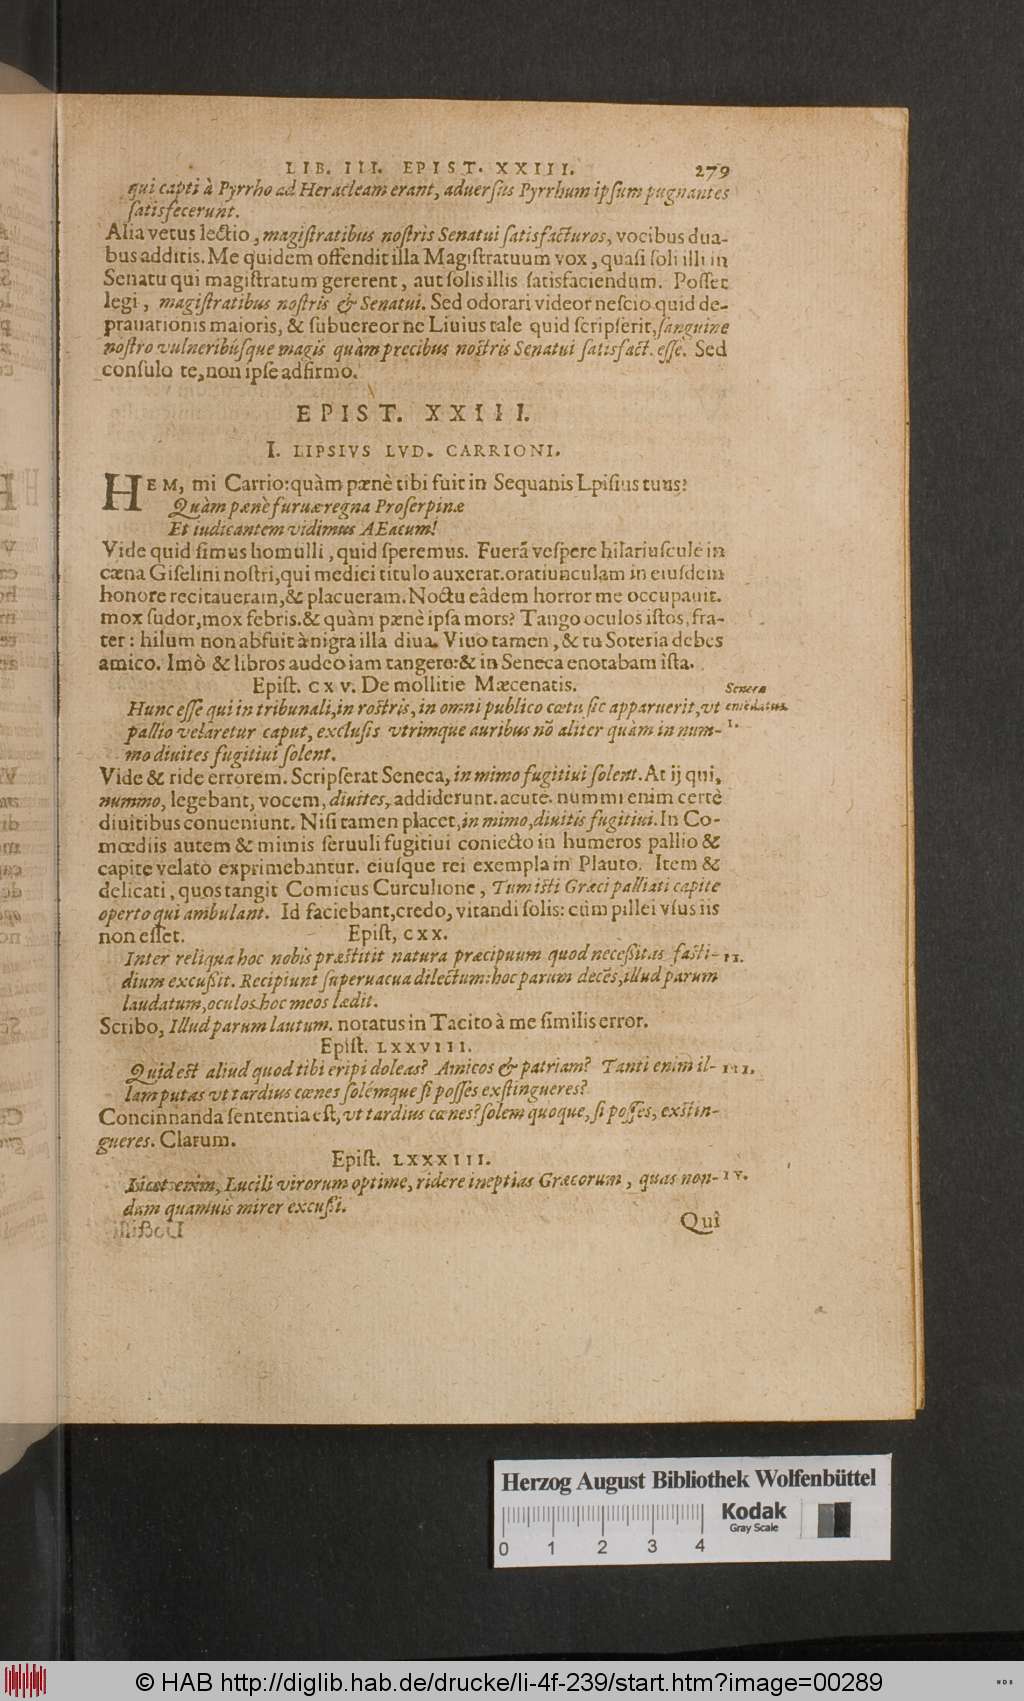 LIB. III. EPIST. XXIII. 279
qui capti à Pyrrho ad Heracleam erant, aduerſus Pyrrhum ipſum pugnantes
ſatisfecerunt.
Alia vetus lectio, magiſtratibus noſtris Senatui ſatisfacturos, vocibus dua-
bus additis. Me quidem offendit illa Magiſtratuum vox, quaſi ſoli illi in
Senatu qui magiſtratum gererent, aut ſolis illis ſatisfaciendum. Poſſet
legi, magiſtratibus noſtris & Senatui. Sed odorari videor neſcio quid de-
prauationis maioris, & ſubuereor ne Liuius tale quid ſcripſerit, ſanguine
noſtro vulneribúſque magis quàm precibus noſtris Senatui ſatisfact. eſſe. Sed
conſulo te, non ipſe adfirmo.
EPIST. XXIII.
I. LIPSIVS LVD. CARRIONI.
HEM, mi Carrio: quàm pænè tibi fuit in Sequanis Lpiſius tuus?
Quàm pænè furuæ regna Proſerpinæ
Et iudicantem vidimus AEacum!
Vide quid ſimus homulli, quid ſperemus. Fuerã veſpere hilariuſculè in
cæna Giſelini noſtri, qui medici titulo auxerat. oratiunculam in eiuſdem
honore recitaueram, & placueram. Noctu eâdem horror me occupauit.
mox ſudor, mox febris. & quàm pænè ipſa mors? Tango oculos iſtos, fra-
ter: hilum non abfuit à nigra illa diua. Viuo tamen, & tu Soteria debes
amico. Imò & libros audeo iam tangere: & in Seneca enotabam iſta.
Epiſt. CXV. De mollitie Mæcenatis.
Seneca
Hunc eſſe qui in tribunali, in roſtris, in omni publico cœtu ſic apparuerit, vt
emēdatus.
pallio velaretur caput, excluſis vtrimque auribus nõ aliter quàm in num-
I.
mo diuites fugitiui ſolent.
Vide & ride errorem. Scripſerat Seneca, in mimo fugitiui ſolent. At ij qui,
nummo, legebant, vocem, diuites, addiderunt. acutè. nummi enim certè
diuitibus conueniunt. Niſi tamen placet, in mimo, diuitis fugitiui. In Co-
mœdiis autem & mimis ſeruuli fugitiui coniecto in humeros pallio &
capite velato exprimebantur. eiuſque rei exempla in Plauto. Item &
delicati, quos tangit Comicus Curculione, Tum iſti Græci palliati capite
operto qui ambulant. Id faciebant, credo, vitandi ſolis: cùm pillei vſus iis
non eſſet. Epiſt, CXX.
Inter reliqua hoc nobis præſtitit natura præcipuum quod neceßitas faſti-
II.
dium excußit. Recipiunt ſuperuacua dilectum: hoc parum decēs, illud parum
laudatum, oculos hoc meos lædit.
Scribo, Illud parum lautum. notatus in Tacito à me ſimilis error.
Epiſt. LXXVIII.
Quid eſt aliud quod tibi eripi doleas? Amicos & patriam? Tanti enim il-
III.
lam putas vt tardius cœnes ſolémque ſi poſſes exſtingueres?
Concinnanda ſententia eſt, vt tardius cœnes? ſolem quoque, ſi poſſes, exſtin-
gueres. Clarum.
Epiſt. LXXXIII.
Licet enim, Lucili virorum optime, ridere ineptias Græcorum, quas non-
IV.
dum quamuis mirer excußi.
Qui
Herzog August Bibliothek Wolfenbüttel
Kodak
Gray Scale
0 1 2 3 4
© HAB http://diglib.hab.de/drucke/li-4f-239/start.htm?image=00289